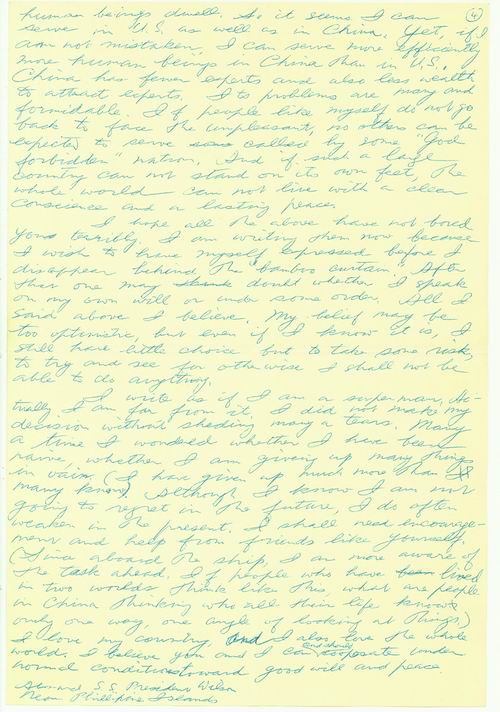 4
human beings dwell. So it seems I can
serve in U.S. as well as in China. Yet, if I
am not mistaken, I can serve more efficiently
more human beings in China than in U.S.,
China has fewer experts and also less wealth
to attract experts. Its problems are many and
formidable. If people like myself do not go
back to face the unpleasant, no others can be
expected to serve so called by some "God
forbidden" nation. And if such a large
country can not stand on its own feet, the
whole world can not live with a clear
conscience and a lasting peace.
I hope all the above have not bored
you terribly. I am writing them now because
I wish to have myself expressed before I
disappear behind the "bamboo curtain". After
that one may doubt whether I speak
on my own will or under some order. All I
said above I believe. My belief may be
too optimistic, but even if I know it is, I
still have little choice but to take some risk,
to try and see for otherwise I shall not be
able to do anything.
I write as if I am a superman. Ac-
tually I am far from it. I did not make my
decision without sheding many a tears. Many
a time I wondered whether I have been
naive whether I am giving up many things
in vain. (I have given up much more than
many know). Although I know I am not
going to regret in the future, I do often
weaken in the present. I shall need encourage-
ment and help from friends like yourself.
(Since aboard the ship, I am more aware of
the task ahead. If people who have lived
in two worlds think like this, what are people
in China thinking who all their life knows
only one way, one angle of looking at things.)
I love my country. And I also love the whole
world. I believe you and I can and should cooperate under
normal conditions toward good will and peace
Aboard S.S. President Wilson
Near Phillipine Islands